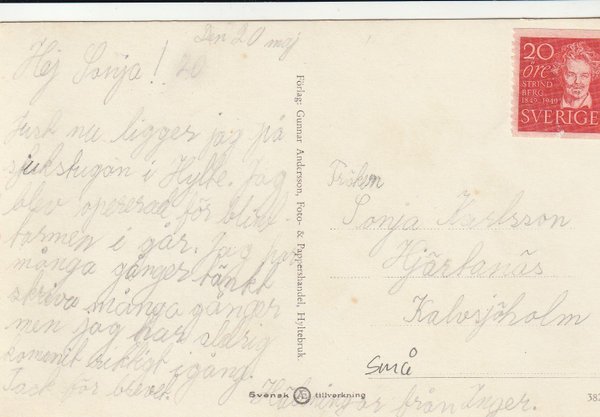 Den 20 maj
Hej Sonja! 20
Just nu ligger jag på
sjukstugan i Hylte. Jag
blev opererad för blind
tarmen i går. Jag har
många gånger tänkt
skriva många gånger
men jag har aldrig
kommit riktigt igång.
Tack för brevet.
Hälsningar från Inger.
Förlag: Gunnar Andersson, Foto- & Pappershandel, Hyltebruk
20
öre
STRIND
BERG
1849-1949
SVERIGE
Fröken
Sonja Karlsson
Hjärtanäs
Kalvsjöholm
Små
Svensk Æ tillverkning
382